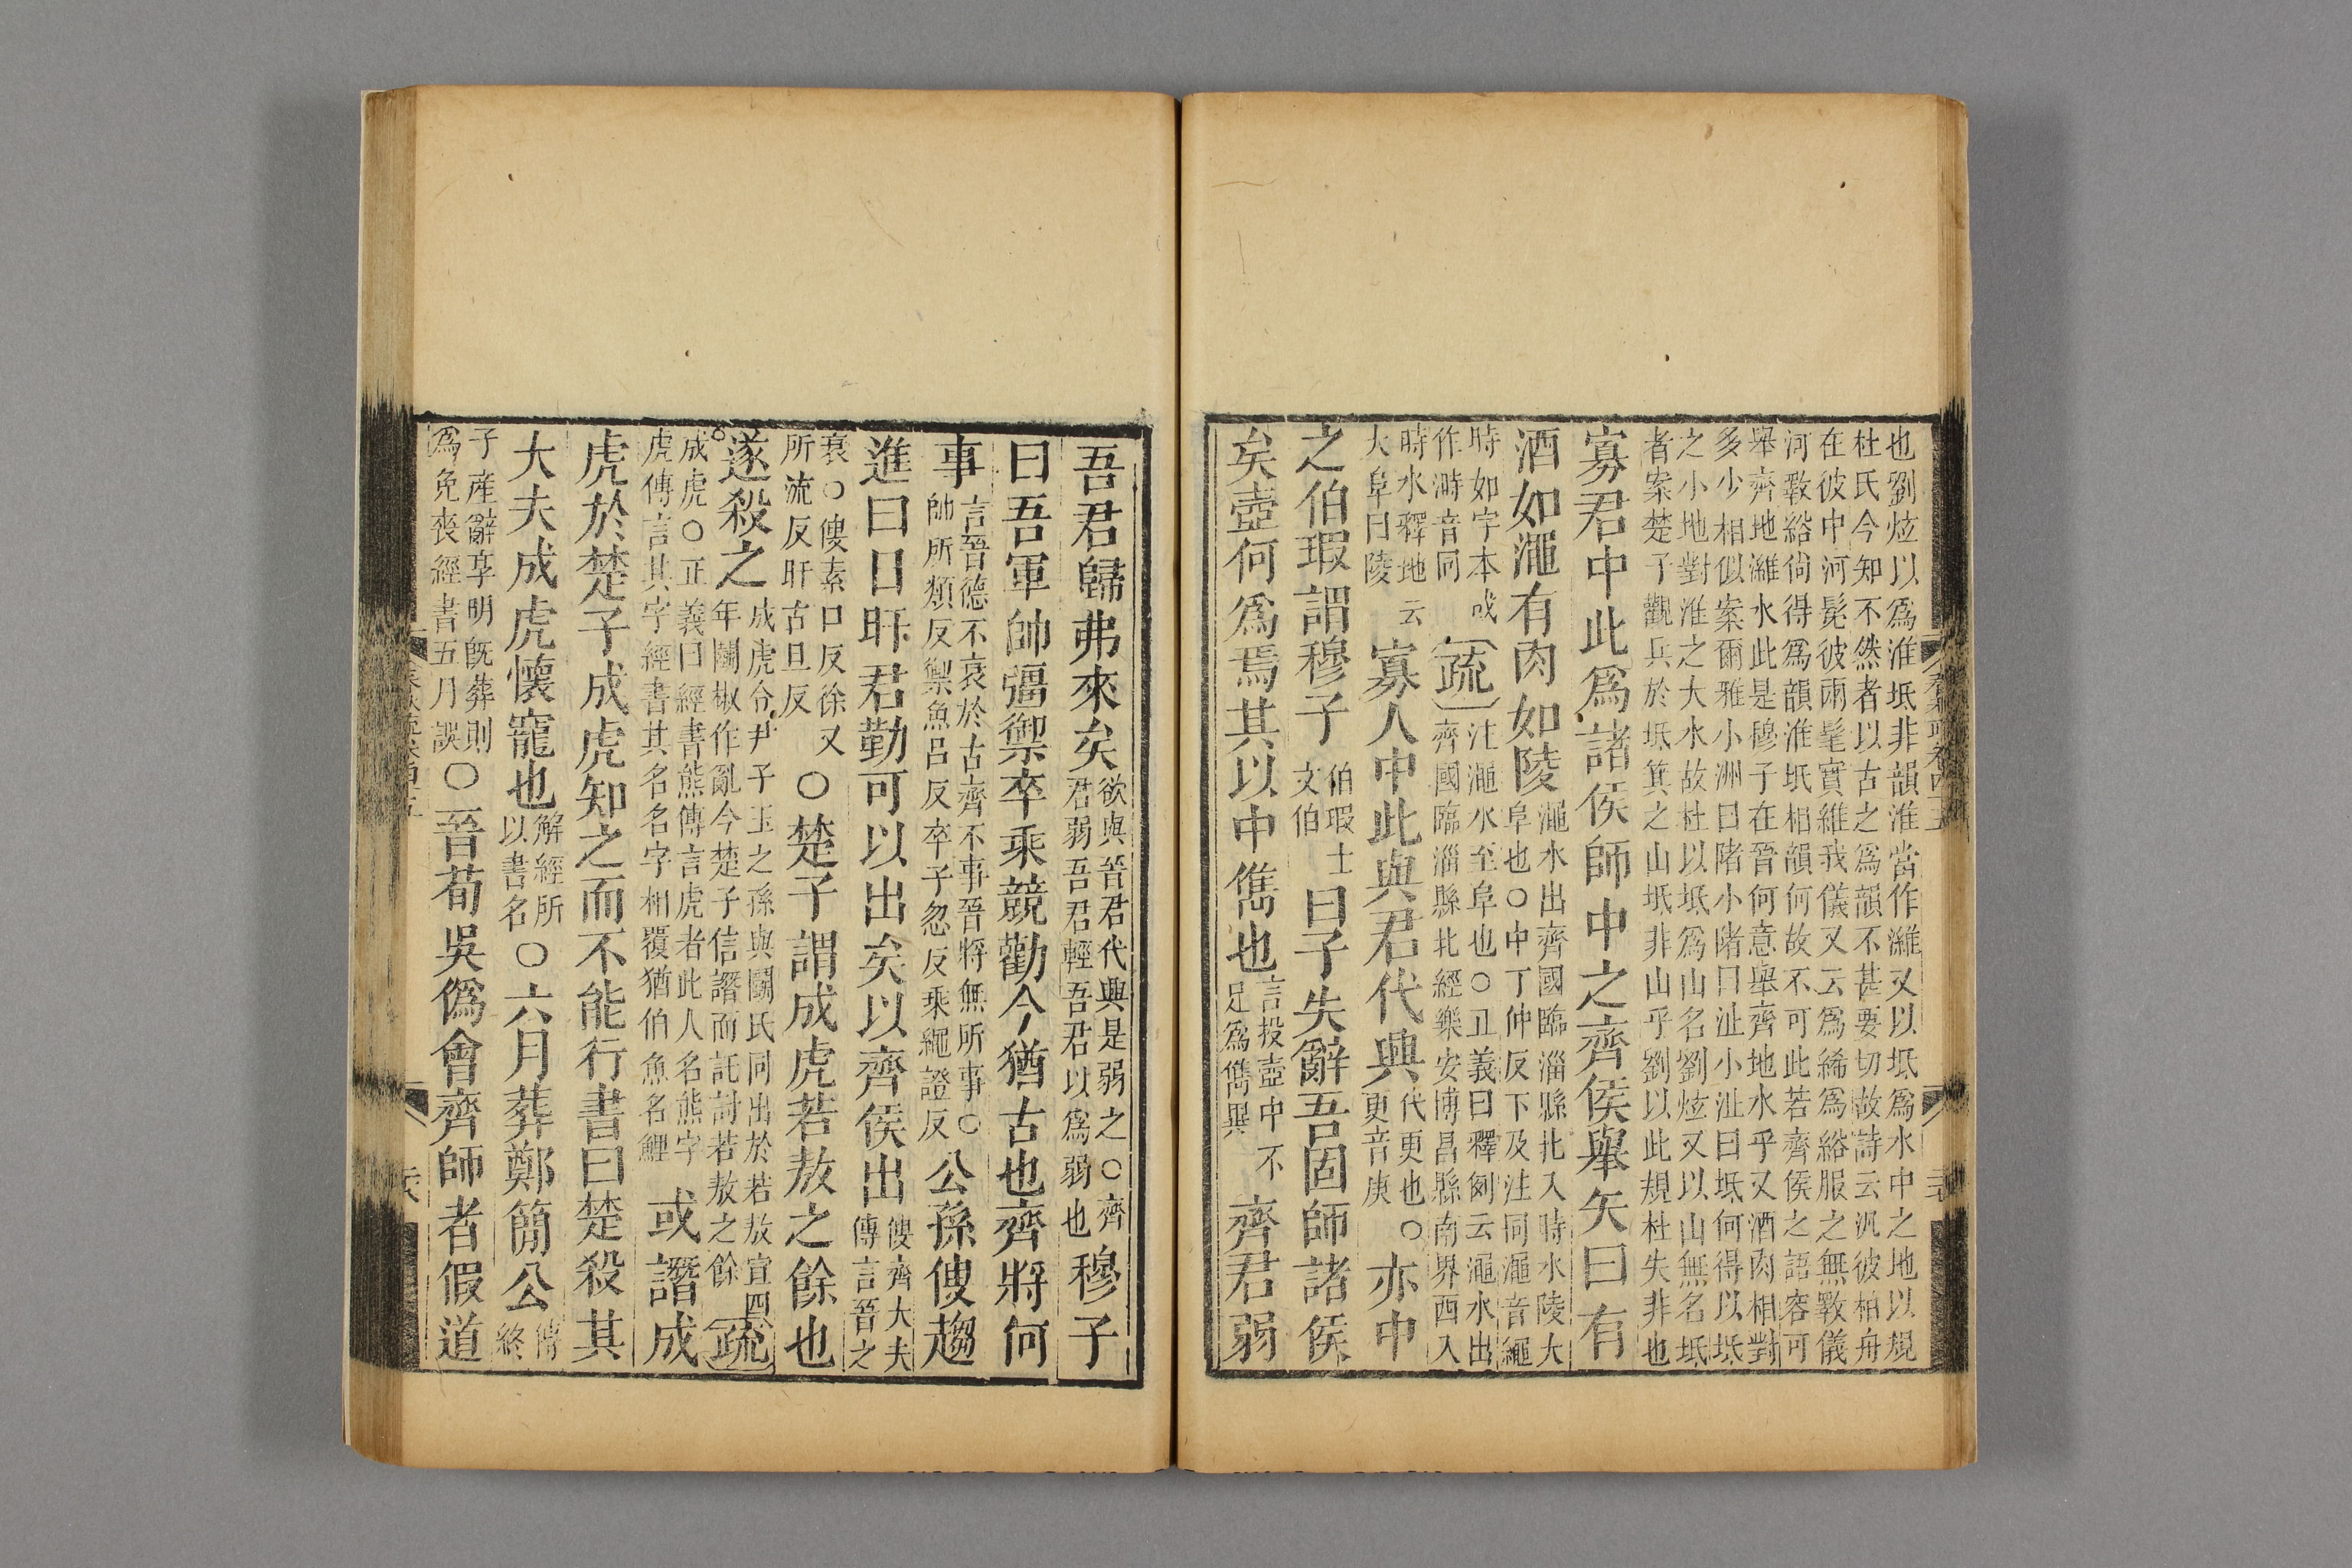 也劉炫以爲淮坻非韻淮當作濰又以坻爲水中之地以規
杜氏今知不然者以古之爲韻不甚要切故詩云汎彼柏舟
在彼中河髧彼兩髦實維我儀又云爲絺爲綌服之無斁儀
河斁綌尚得爲韻淮坻相韻何故不可此若齊侯之語容可
舉齊地濰水此是穆子在晉何意舉齊地水乎又酒肉相對
多少相似案爾雅小洲曰陼小陼曰沚小沚曰坻何得以坻
之小地對淮之大水故杜以坻爲山名劉炫又以山無名坻
者案楚子觀兵於坻箕之山坻非山乎劉以此規杜失非也
寡君中此爲諸侯師中之齊侯舉矢曰有
酒如澠有肉如陵 澠水出齊國臨淄縣北入時水陵大
阜也○中丁仲反下及注同澠音繩
時如字本或
作溡音同 疏 注澠水至阜也○正義曰釋例云澠水出
齊國臨淄縣北經樂安博昌縣南界西入
時水釋地云
大阜曰陵 寡人中此與君代興 代更也○
更音庚 亦中
之伯瑕謂穆子 伯瑕士
文伯 曰子失辭吾固師諸侯
矣壺何爲焉其以中儁也 言投壺中不
足爲儁異 齊君弱
吾君歸弗來矣 欲與晉君代興是弱之○齊
君弱吾君輕吾君以爲弱也 穆子
曰吾軍帥彊禦卒乘競勸今猶古也齊將何
事 言晉德不衰於古齊不事晉將無所事○
帥所類反禦魚呂反卒子忽反乘繩證反 公孫傁趨
進曰日旰君勤可以出矣以齊侯出 傁齊大夫
傳言晉之
衰○傁素口反徐又
所流反旰古旦反 ○楚子謂成虎若敖之餘也
遂殺之 成虎令尹子玉之孫與鬭氏同出於若敖宣四
年鬭椒作亂今楚子信譖而託討若敖之餘 疏
成虎○正義曰經書熊傳言虎者此人名熊字
虎傳言其字經書其名名字相覆猶伯魚名鯉 或譖成
虎於楚子成虎知之而不能行書曰楚殺其
大夫成虎懷寵也 解經所
以書名 ○六月葬鄭簡公 傳
終
子産辭享明旣葬則
爲免喪經書五月誤 ○晉荀吳僞會齊師者假道